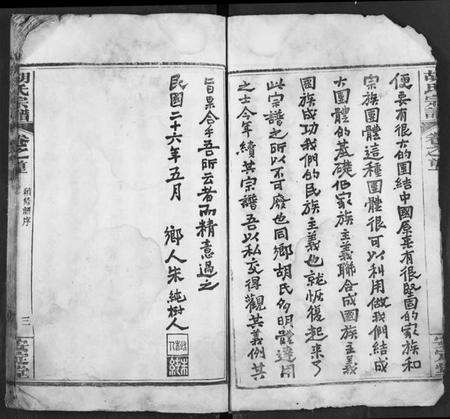 便要有很大的團結中國原来有很堅固的家族和
宗族團體這種團體很可以利用做我們結成
大團體的基礎但家族主義聯合成國族主義
國族成功我們的民族主義也就恢復起来了
此宗譜之所以不可廢也同鄉胡氏多明體達用
之士今年續其宗譜吾以私交得觀其義例其
旨果合乎吾所云者而精意過之
民國二十六年五月 鄉人朱純樹人
胡氏宗譜
卷之首
三